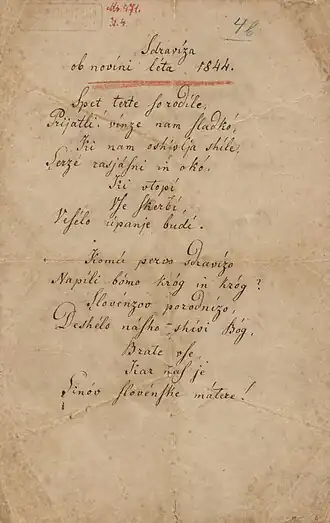 Ms. 471.
N. 4.
46
Sdravíza
ob novíni léta 1844.
Spet terte so rodíle,
Prijatli, vínze nam sladkó,
Ki nam oshivlja shíle,
Serzé rasjásni in okó.
Ki vtopí
Vse skerbí,
Vesélo vúpanje budí.
Komú pervo sdravízo
Napíli bómo króg in króg?
Slovenzov porodnízo,
Deshélo násho shívi Bóg,
Brate vse,
Kar nas je
Sinóv slovénske mátere!